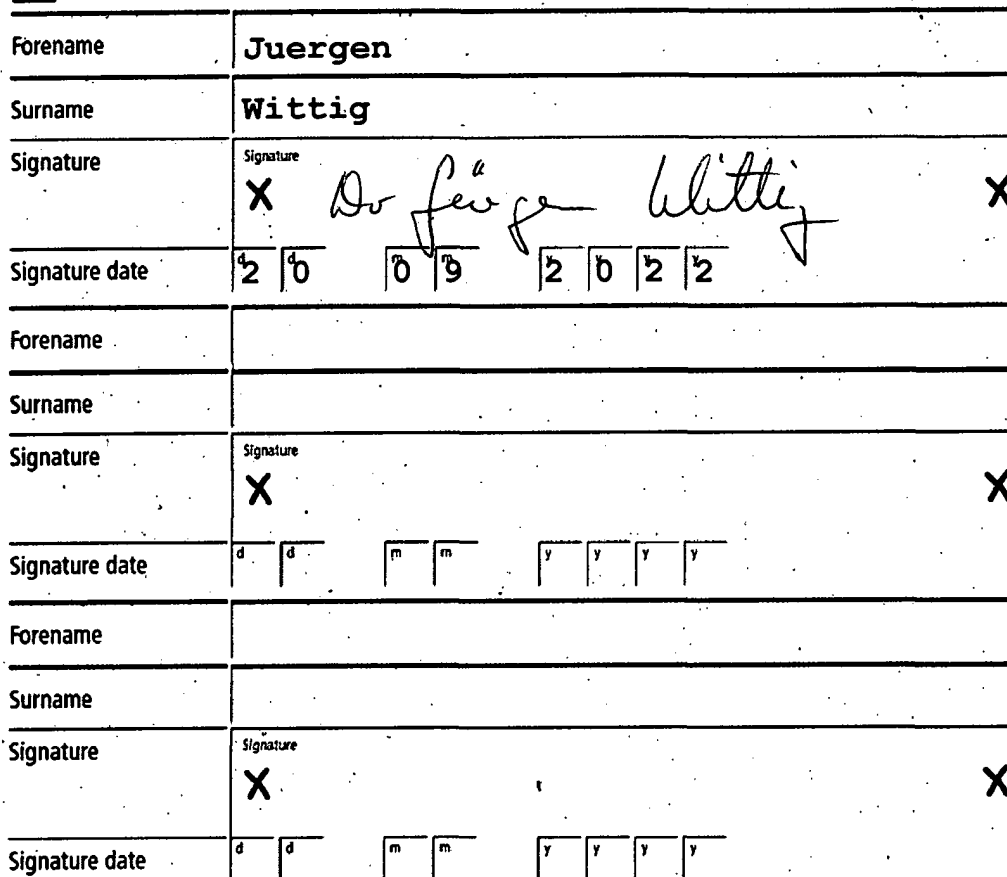 Forename Juergen
Surname Wittig
Signature Signature
X Dr Jürgen Wittig X
Signature date d2 d0 m0 m9 y2 y0 y2 y2
Forename
Surname
Signature Signature
X X
Signature date d d m m y y y y
Forename
Surname
Signature Signature
X X
Signature date d d m m y y y y